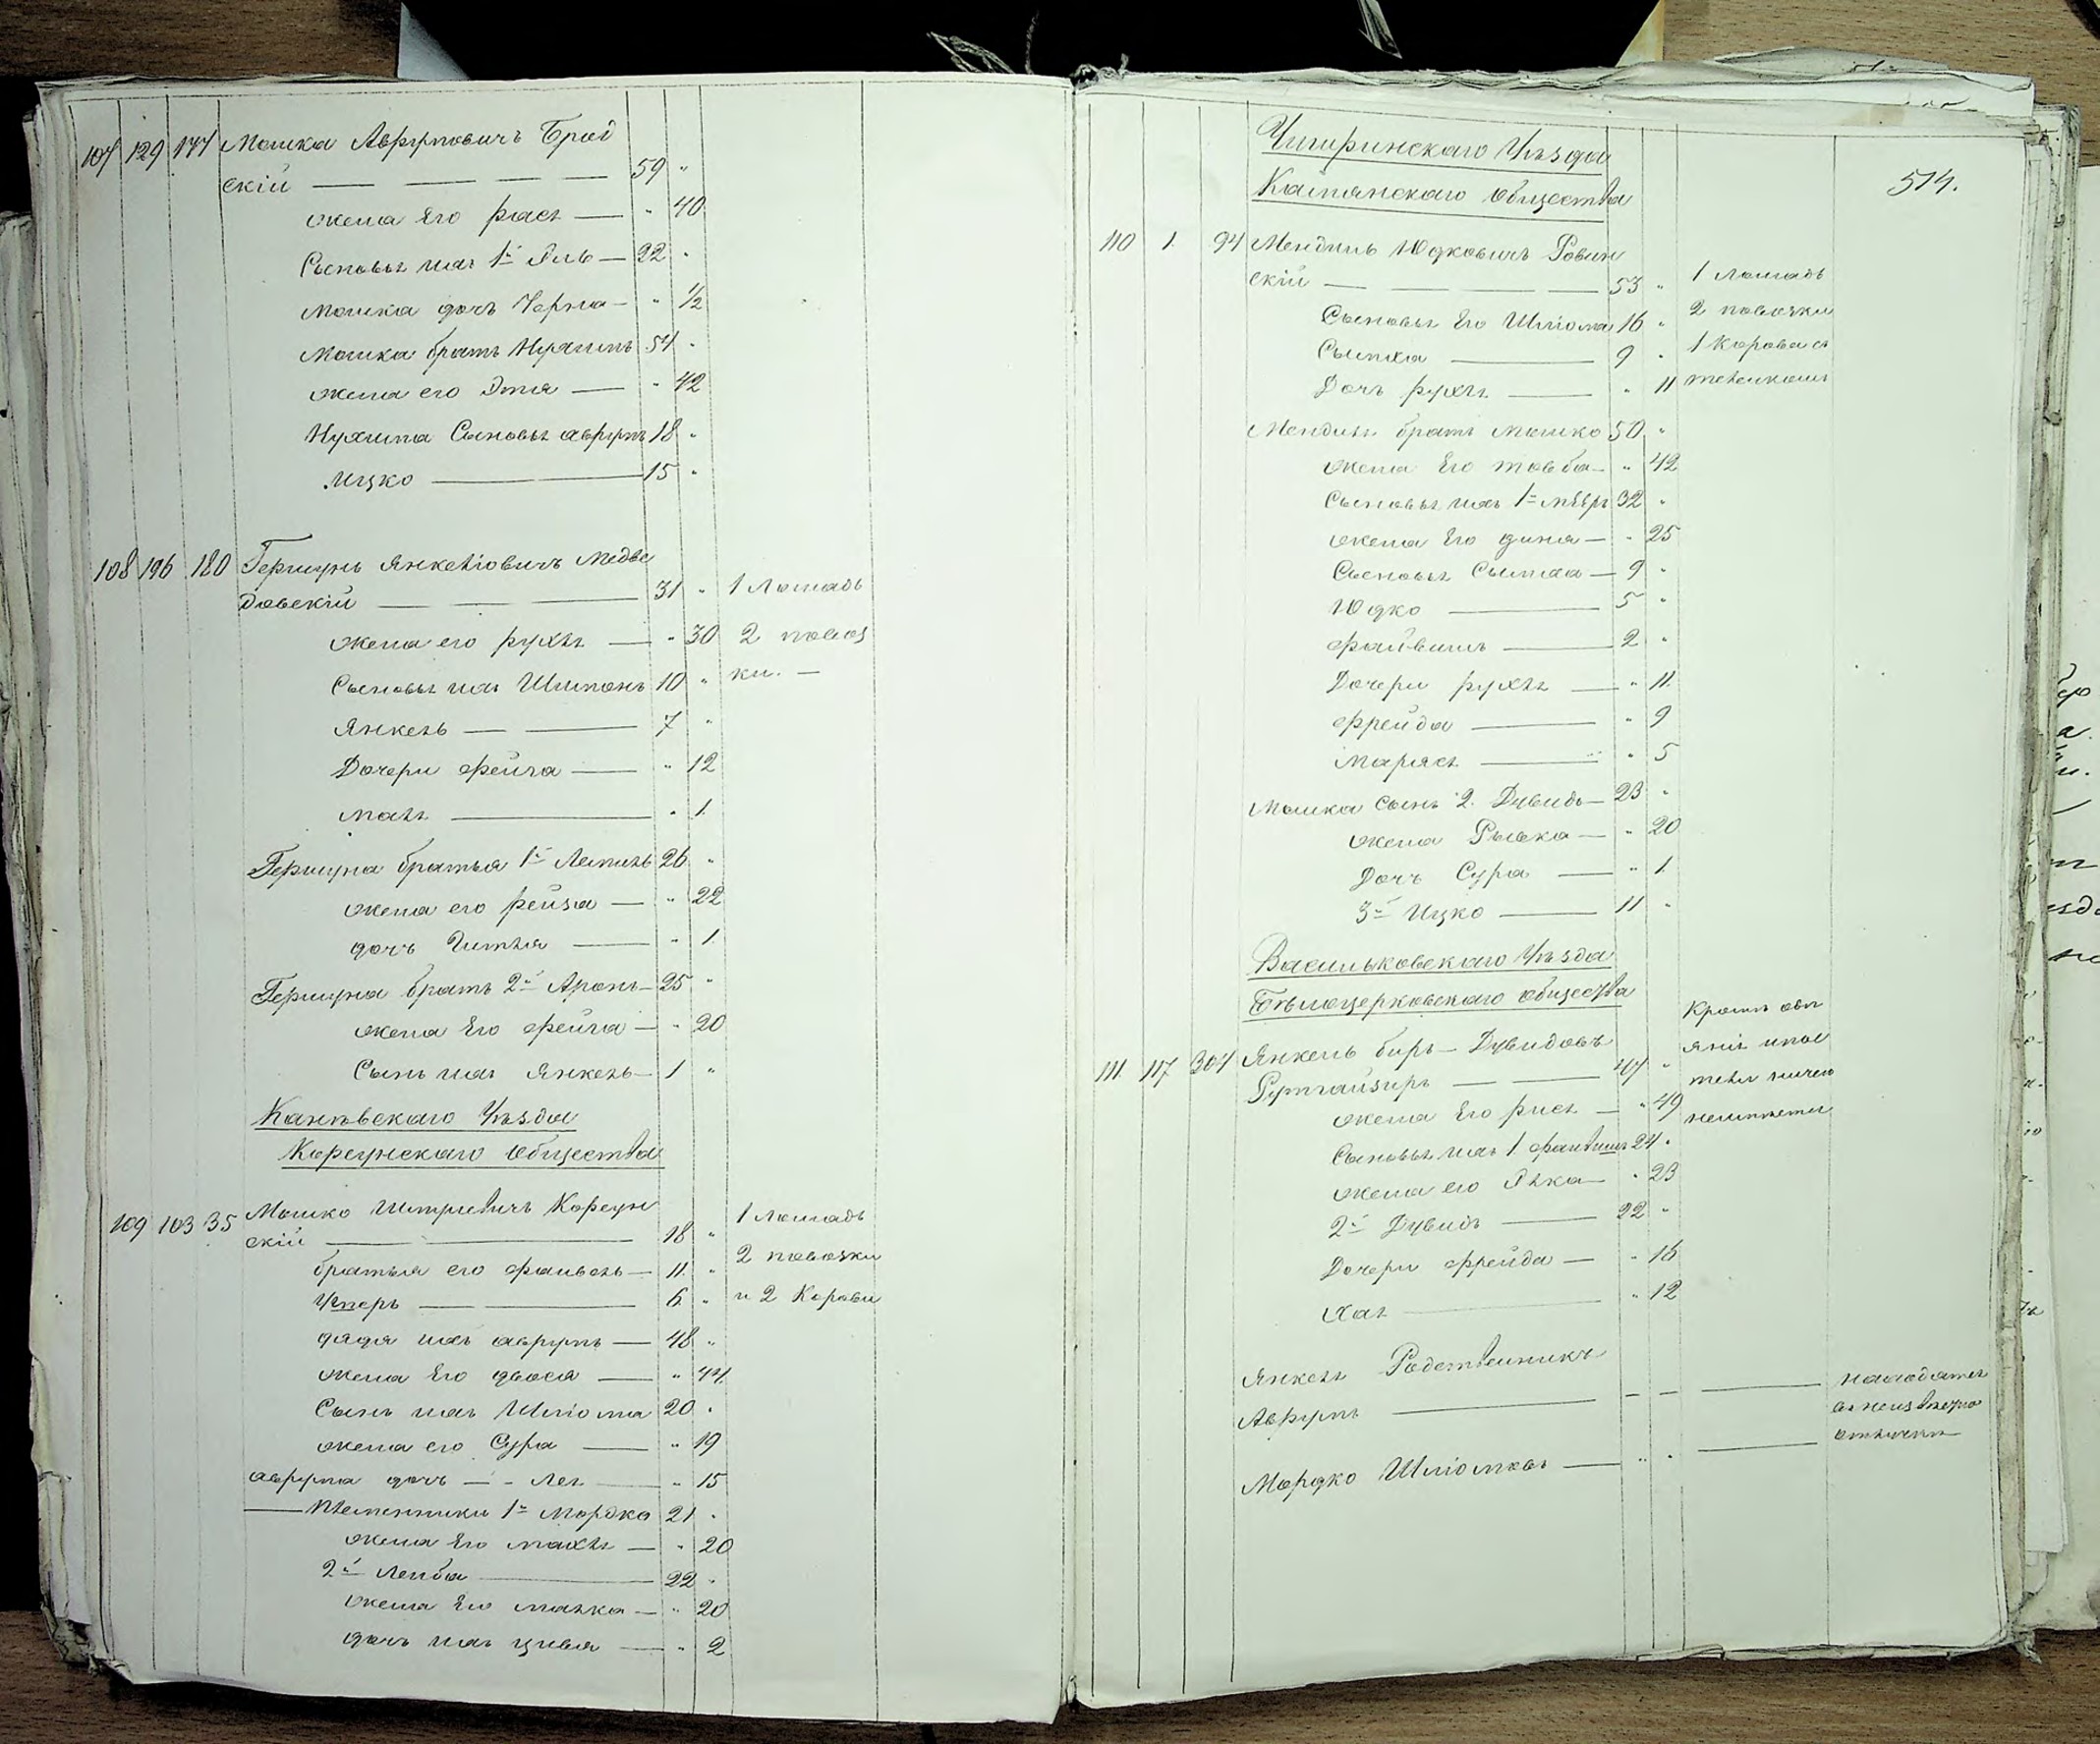 107 129 177 Мошка Аврумовичъ Брод
скій — — — — 59 "
жена Его рися — " 40
Сыновья ихъ 1й Эль — 22 "
Мошка дочь Черна — " 1/2
Мошка братъ Нухимъ 54 "
жена его Этя — " 42
Нухима Сыновья аврумъ 18 "
Ицко — 15 "
108 196 180 Гершунъ Янкеліовичъ Медве
довскій — — — 31 " 1 Лошадь
жена его рухля — " 30 2 повоз
Сыновья ихъ Шимонъ 10 " ки. —
Янкель — — 7 "
Дочери фейга — " 12
маля — " 1.
Гершуна братья 1й Лейзеръ 26 "
жена его рейза — " 22
дочь Гитля — " 1.
Гершуна братъ 2й Аронъ — 25 "
жена Его фейга — " 20
Сынъ ихъ Янкель — 1 "
Каневскаго Уѣзда
Корсунскаго Общества
109 103 35 Мошко Шмулевичъ Корсун
скій — — 18 " 1 Лошадь
братья его файвель — 11. " 2 повозки
Умеръ — — 6. " и 2 Коровы
дядя ихъ аврумъ — 48 "
жена Его двося — " 44
Сынъ ихъ Шліома 20 "
жена его Сура — " 19
аврума дочь — - Лея — " 15
— племенники 1й Мордко 21 "
жена Его махля — " 20
2й Лейба — 22 "
жена Его малка — " 20
дочь ихъ цивья — " 2
Чигиринскаго Уѣзда
Каменскаго Общества
514.
110 1. 94 Мендиль Юдковичъ Ровин
скій — — — — 53 " 1 лошадь
Сыновья Его Шліома 16 " 2 повозки
Сымха — 9 " 1 Корова съ
Дочь рухля — " 11 теленкомъ
Мендиля братъ мошко 50 "
жена Его товба — " 42
Сыновья ихъ 1й мееръ 32 "
жена Его дина — " 25
Сыновья Сымха — 9 "
Юдко — 5 "
файвишъ — 2 "
Дочери рухля — " 11.
фрейда — " 9
Маряся — " 5
Мошка сынъ 2. Дувидъ — 23 "
жена Рывка — " 20
Дочь Сура — " 1.
3й Ицко — 11 "
Васильковскаго Уѣзда
Бѣлоцерковскаго общества
111. 117 304 Янкель биръ — Дувидовъ
— — 47 "
Кромѣ одѣ
янія и пос
тели ничего
неимѣетъ
жена Его рися — " 49
Сыновья ихъ 1 файвишъ 24 "
жена его — " 23
2й Дувидъ — 22 "
Дочери фрейда — " 16
Хая — " 12
Янкеля Родственникъ
Аврумъ — - - —
находятся
въ неизвѣстной
отлучкѣ
Мордко Шліомовъ — " " —